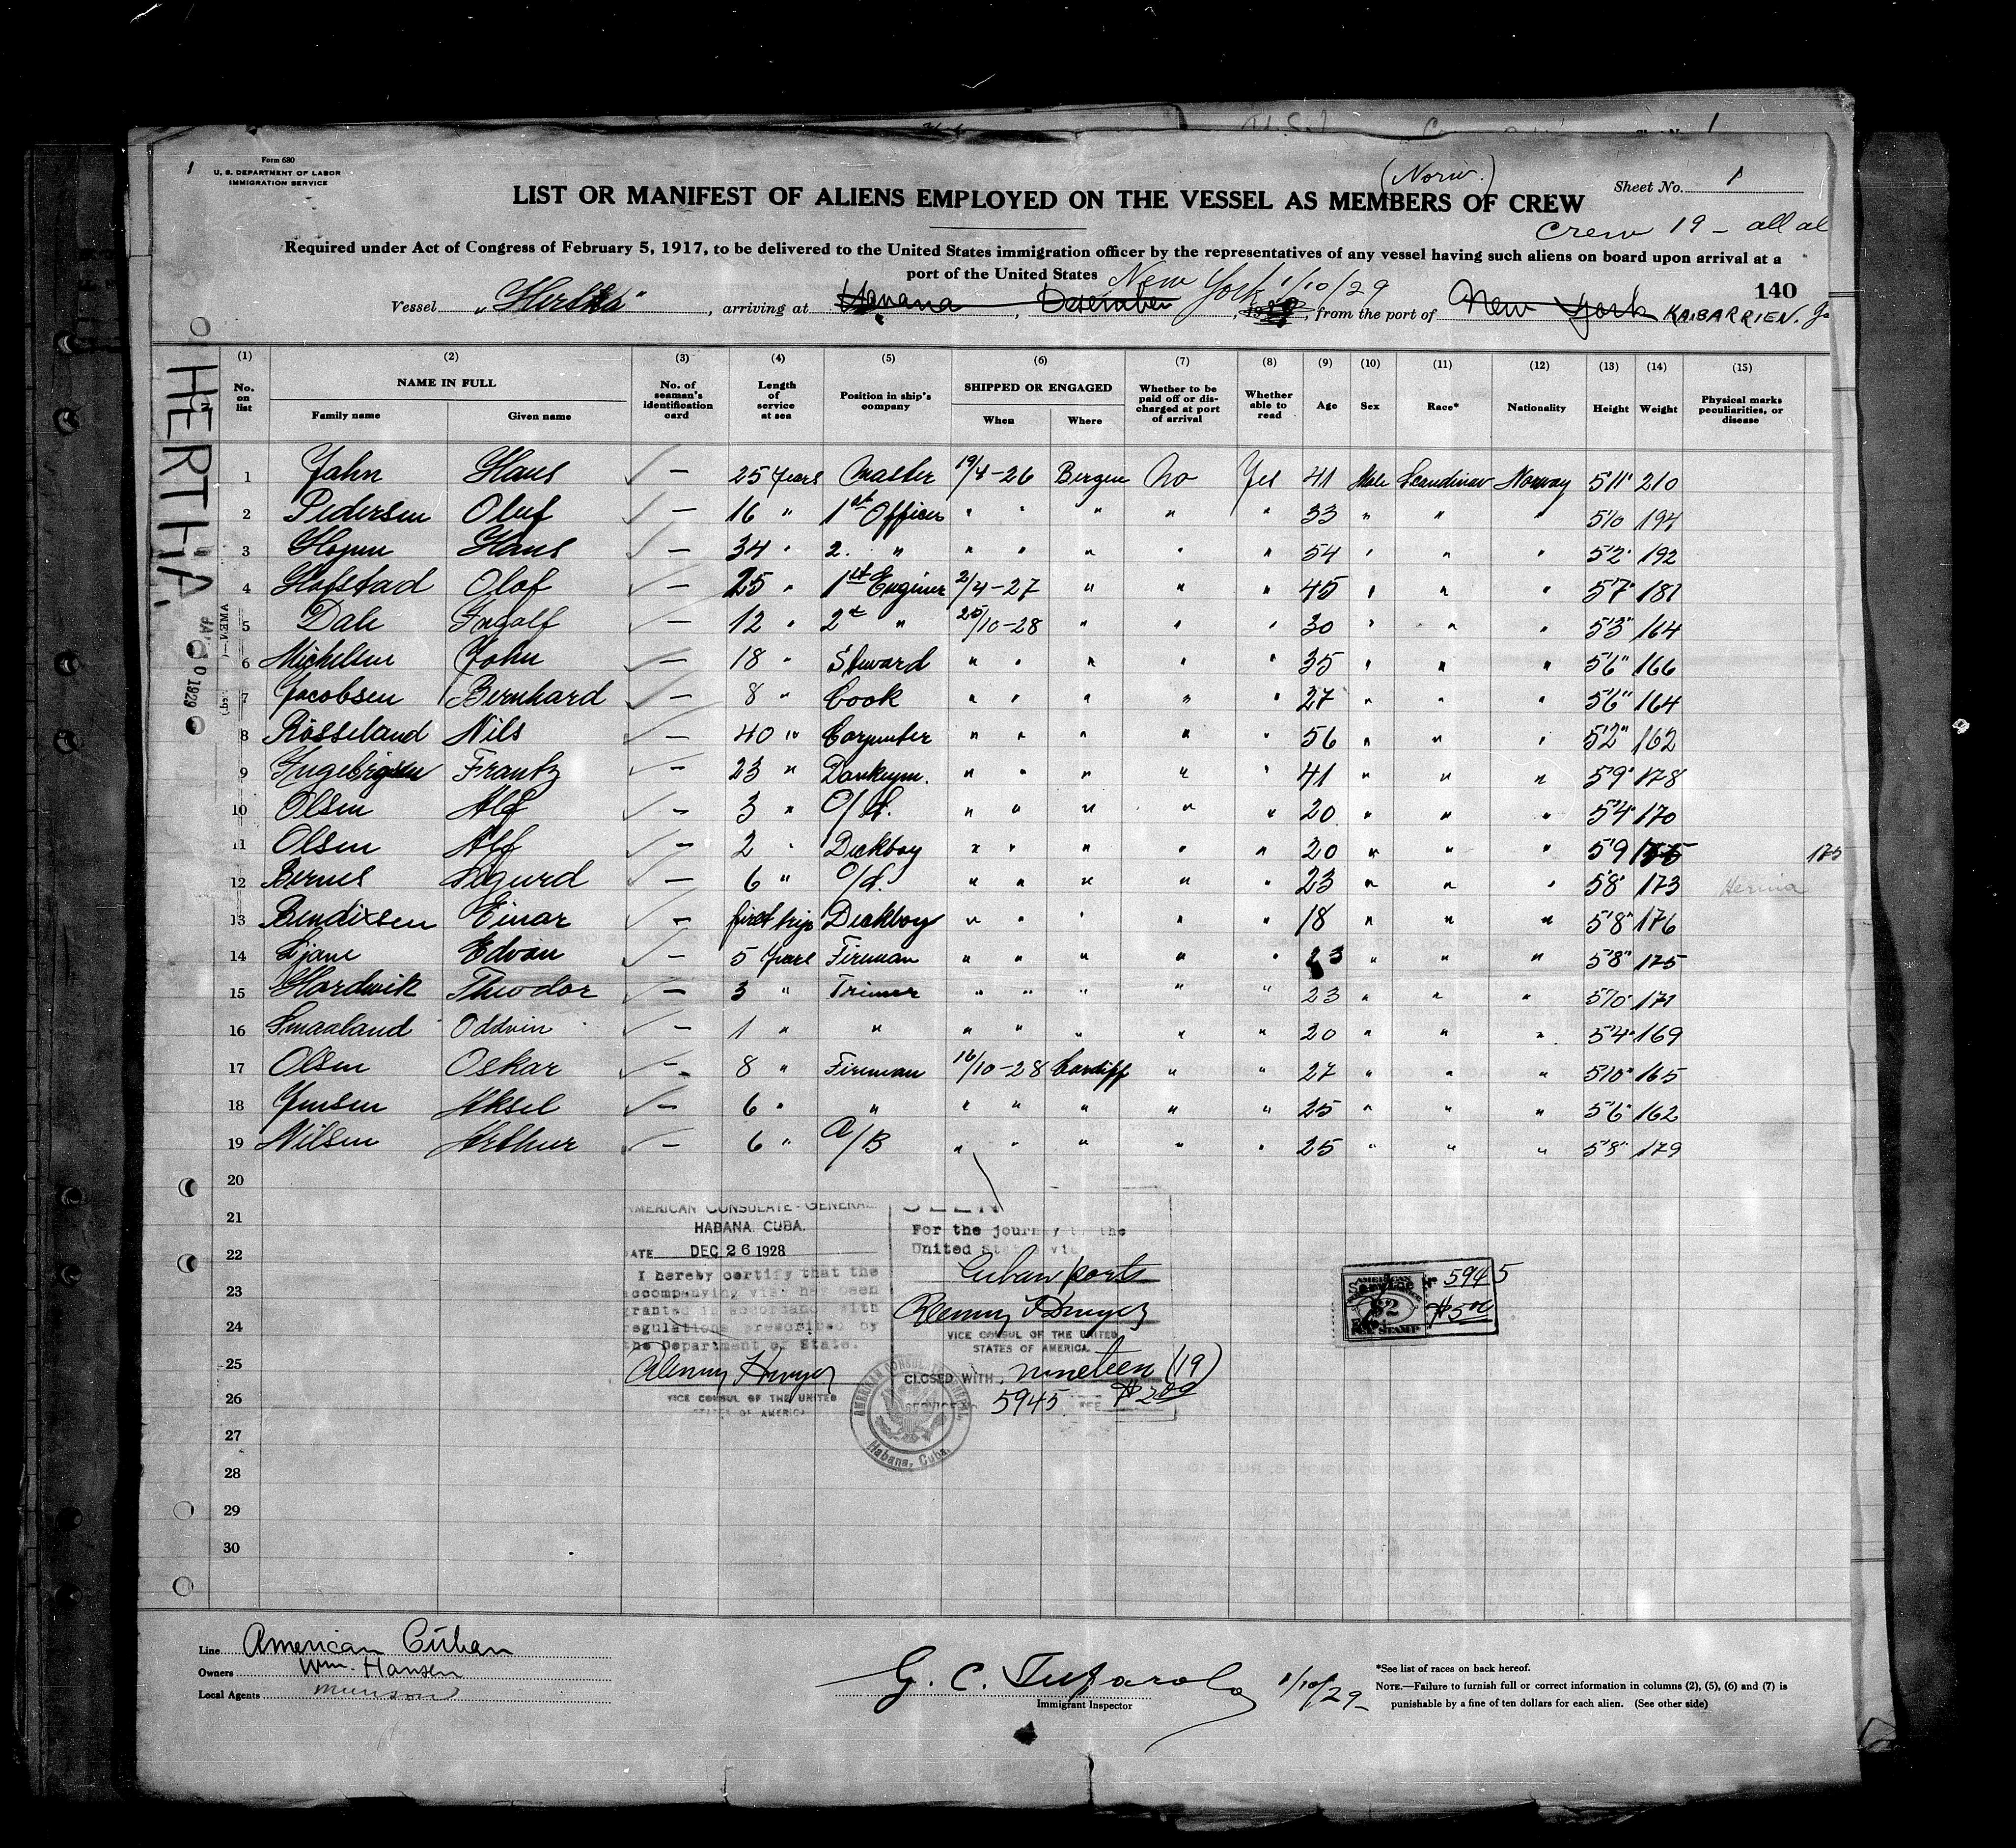 1
Form 680
U. S. DEPARTMENT OF LABOR
IMMIGRATION SERVICE
(Norw.)
Sheet No. 1
LIST OR MANIFEST OF ALIENS EMPLOYED ON THE VESSEL AS MEMBERS OF CREW
Crew 19 - all al
Required under Act of Congress of February 5, 1917, to be delivered to the United States immigration officer by the representatives of any vessel having such aliens on board upon arrival at a
port of the United States
New York 1/10/29
140
Vessel "Hertha", arriving at Havana, Desember, 19, from the port of New York KAIBARRIEN.
HERTHA.
(1) (2) (3) (4) (5) (6) (7) (8) (9) (10) (11) (12) (13) (14) (15)
No. on list NAME IN FULL Family name Given name No. of seaman's identification card Length of service at sea Position in ship's company SHIPPED OR ENGAGED When Where Whether to be paid off or discharged at port of arrival Whether able to read Age Sex Race* Nationality Height Weight Physical marks peculiarities, or disease
1 Jahn Hans — 25 Years Master 19/4-26 Bergen No Yes 41 Male Scandinav Norway 5'11" 210
2 Pedersen Oluf — 16 " 1st Officer " " " " " 33 " " " 5'10 194
3 Hans — 34 " 2. " " " " " " 54 " " " 5'2" 192
4 Hofstad Olof — 25 " 1st Enginer 2/4-27 " " " 45 " " " 5'7" 181
5 Dale — 12 " 2nd " 25/10-28 " " " 30 " " " 5'3" 164
6 Michelsen John — 18 " Steward " " " " " 35 " " " 5'6" 166
7 Jacobsen Bernhard — 8 " Cook " " " " " 27 " " " 5'6" 164
8 Rösseland Nils — 40 " Carpenter " " " " " 56 " " " 5'2" 162
9 Frantz — 23 " Donkeym. " " " " " 41 " " " 5'9" 178
10 Olsen Alf — 3 " O/S. " " " " " 20 " " " 5'4" 170
11 Olsen Alf — 2 " Deckboy " " " " " 20 " " " 5'9 175
12 Sigurd — 6 " O/S. " " " " " 23 " " " 5'8" 173 Hernia
13 Bendixsen Einar — first trip Deckboy " " " " " 18 " " " 5'8" 176
14 — 5 Years Fireman " " " " " 23 " " " 5'8" 175
15 Hordwik Theodor — 3 " Trimer " " " " " 23 " " " 5'10" 171
16 Smaaland Oddvin — 1 " " " " " " " 20 " " " 5'4" 169
17 Olsen Oskar — 8 " Fireman 16/10-28 Cardiff " " 27 " " " 5'10" 165
18 Jensen Aksel — 6 " " " " " " " 25 " " " 5'6" 162
19 Nilsen Arthur — 6 " A/B " " " " " 25 " " " 5'8" 179
20
21
22
23
24
25
26
27
28
29
30
AMERICAN CONSULATE-GENERAL
HABANA, CUBA.
DATE DEC 26 1928
I hereby certify that the
accompanying visa has been
granted in accordance with
regulations prescribed by
the Department of State.
VICE CONSUL OF THE UNITED
STATES OF AMERICA
SEEN
For the journey to the
United States via
Cuban ports
VICE CONSUL OF THE UNITED
STATES OF AMERICA.
CLOSED WITH nineteen (19)
SERVICE NO 5945 FEE $2.00
AMERICAN CONSULATE GENERAL
Habana, Cuba.
Service No 5945
$2
STAMP
Line American Cuban
Owners Wm. Hansen
Local Agents Munson
Immigrant Inspector
1/10/29-
*See list of races on back hereof.
NOTE.—Failure to furnish full or correct information in columns (2), (5), (6) and (7) is
punishable by a fine of ten dollars for each alien. (See other side)